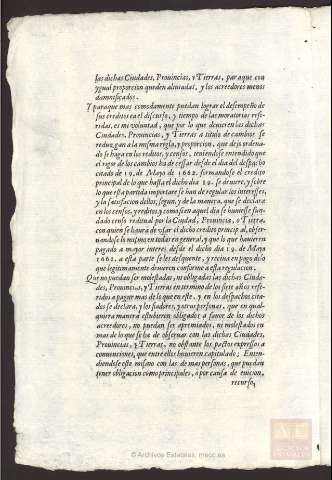 las dichas Ciudades, Prouincias, y Tierras, para que con
ygual proporcion queden aliuiadas, y los acreedores menos
damnificados.
Y para que mas comodamente puedan lograr el desempeño de
sus creditos en el discurso, y tiempo de las moratorias refe-
ridas, es mi voluntad, que por lo que deuieren las dichas
Ciudades, Prouincias, y Tierras a titulo de cambios se
reduzgan a la misma regla, y proporcion, que dexo ordena-
do se haga en los reditos, y censos, teniendose entendido que
el rigor de los cambios ha de cessar desde el dia del despacho
citado de 19. de Mayo de 1662. formandose el credito
principal de lo que hasta el dicho dia 19. se deuiere, y sobre
lo que esta partida importare se han de regular los interesses,
y la satisfacion dellos, segun, y de la manera, que se declara
en los censos, y reditos, y como si en aquel dia se huuiesse fun-
dado censo redimible por la Ciudad, Prouincia, o Tierra,
con quien se huuiere de vsar el dicho credito principal, obser-
uandose lo mismo en todas en general, y que lo que huuieren
pagado a mayor interes desde el dicho dia 19. de Mayo
1662. a esta parte se les desquente, y reciua en pago de lo
que legitimamente deuieren conforme a esta regulacion.
Que no puedan ser molestados, ni obligadas las dichas Ciuda-
des, Prouincias, y Tierras en termino de los siete años refe-
ridos a pagar mas de lo que en este, y en los despachos cita-
dos se declara, y los fiadores, y otras personas, que en qual-
quiera manera estubieren obligados a fauor de los dichos
acreedores, no puedan ser apremiados, ni molestados en
mas de lo que se ha de obseruar con las dichas Ciudades,
Prouincias, y Tierras, no obstante los pactos expressos o
conuenciones, que entre ellos huuieren capitulado; Enten-
diendose este mismo con las de mas personas, que puedan
tener obligacion como principales, o por causa de euicion,
recurso,
© Archivos Estatales, mecc.es